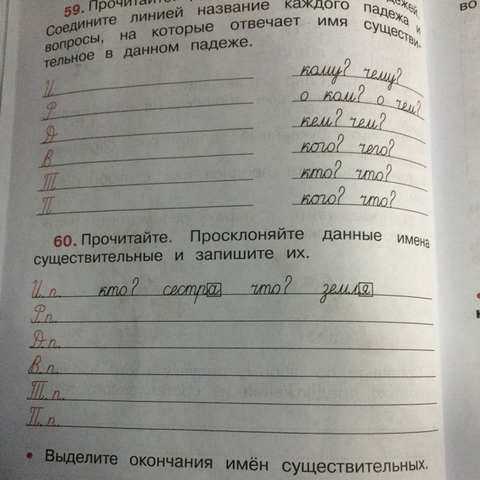 59. Прочитайте
Соедините линией название каждого падежа и
вопросы, на которые отвечает имя существи-
тельное в данном падеже.
И. кому? чему?
Р. о ком? о чём?
Д. кем? чем?
В. кого? чего?
Т. кто? что?
П. кого? что?
60. Прочитайте. Просклоняйте данные имена
существительные и запишите их.
И. п. кто? сестра что? земля
Р. п.
Д. п.
В. п.
Т. п.
П. п.
• Выделите окончания имён существительных.
во